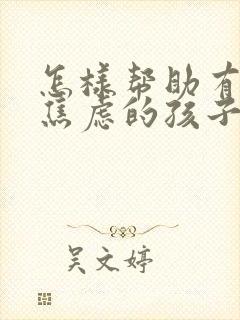 怎樣帮助有
焦虑的孩子
吴文婷